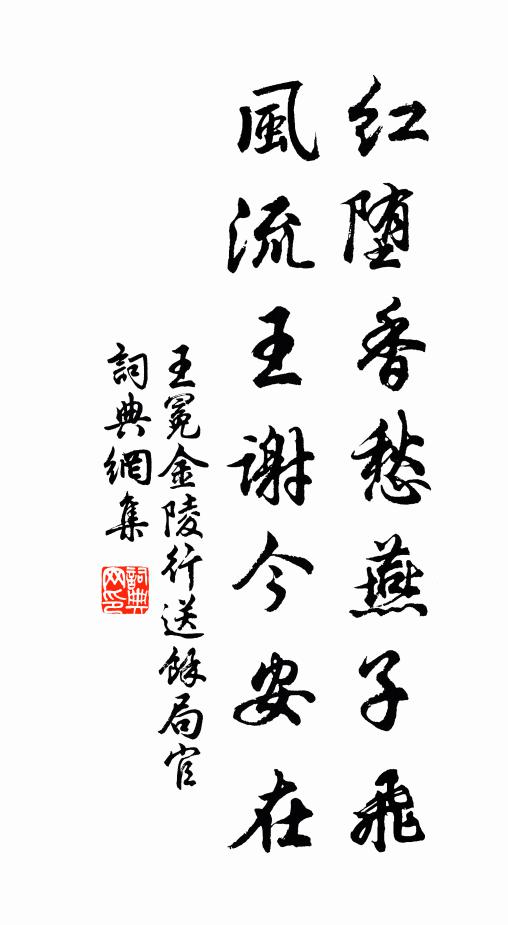 红堕香愁燕子飛
風流王谢今安在
王冕金陵行送餘局官
詞典網集
詞典网印